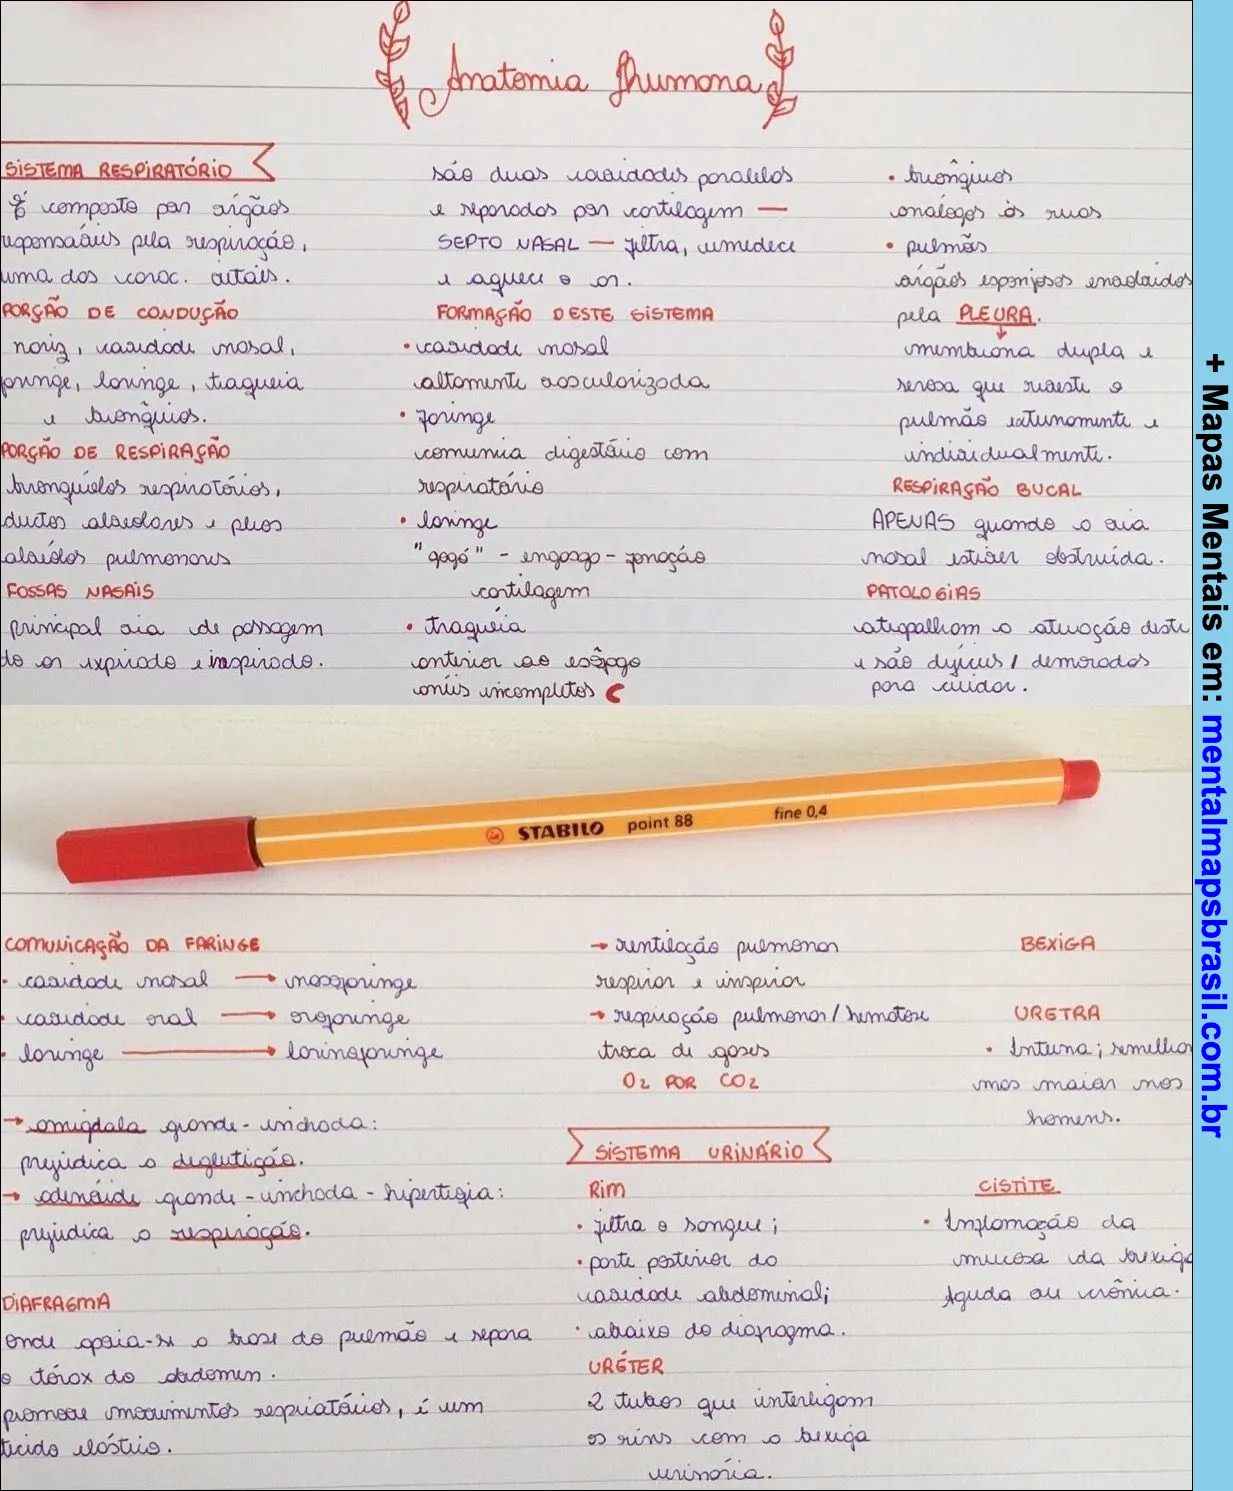 Anatomia Humana
SISTEMA RESPIRATÓRIO
É composto por órgãos
responsáveis pela respiração,
uma dos carac. vitais.
PORÇÃO DE CONDUÇÃO
nariz, cavidade nasal,
faringe, laringe, traqueia
e brônquios.
PORÇÃO DE RESPIRAÇÃO
bronquíolos respiratórios,
ductos alveolares e
alvéolos pulmonares
FOSSAS NASAIS
principal via de passagem
do ar expirado e inspirado.
são duas cavidades paralelas
e separadas por cartilagem —
SEPTO NASAL — filtra, umedece
e aquece o ar.
FORMAÇÃO DESTE SISTEMA
• cavidade nasal
altamente vascularizada
• faringe
comunica digestório com
respiratório
• laringe
"gogó" - engasgo - fonação
cartilagem
• traqueia
anterior ao esôfago
anéis incompletos C
• brônquios
análogos às ruas
• pulmões
órgãos esponjosos envolvidos
pela PLEURA.
membrana dupla e
serosa que reveste o
pulmão externamente e
individualmente.
RESPIRAÇÃO BUCAL
APENAS quando a via
nasal estiver obstruída.
PATOLOGIAS
atrapalham a atuação deste
e são difíceis / demorados
para cuidar.
STABILO point 88 fine 0,4
COMUNICAÇÃO DA FARINGE
• cavidade nasal → nasofaringe
• cavidade oral → orofaringe
• laringe → laringofaringe
→ amígdala grande - inchada:
prejudica a deglutição.
→ adenoide grande - inchada - hipertrofia:
prejudica a respiração.
DIAFRAGMA
onde apoia-se a base do pulmão e separa
o tórax do abdomen.
promove movimentos respiratórios, é um
tecido elástico.
→ ventilação pulmonar
respirar e inspirar
→ respiração pulmonar / hematose
troca de gases
O2 POR CO2
SISTEMA URINÁRIO
RIM
• filtra o sangue;
• parte posterior da
cavidade abdominal;
• abaixo do diafragma.
URÉTER
2 tubos que interligam
os rins com a bexiga
urinária.
BEXIGA
URETRA
• Interna; semelhan
mas maior nos
homens.
CISTITE
• Inflamação da
mucosa da bexiga
Aguda ou crônica.
+ Mapas Mentais em: mentalmapsbrasil.com.br